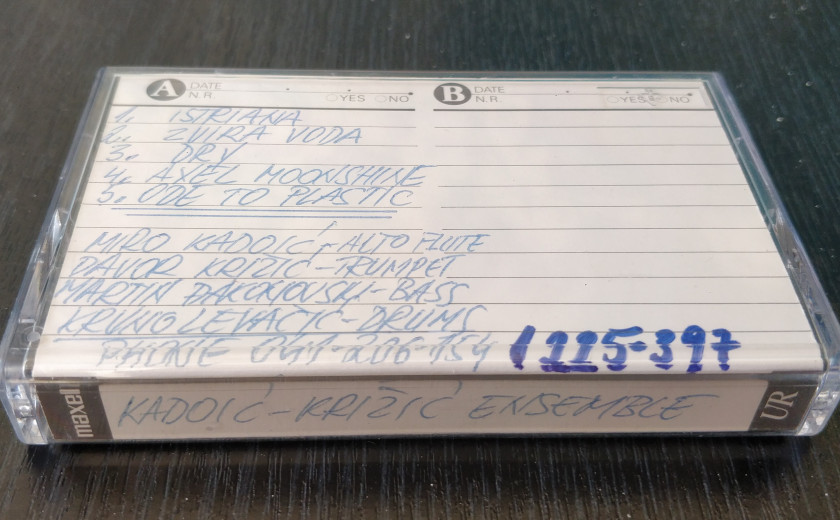 A DATE N.R. YES NO
B DATE N.R. YES NO
1. ISTRIANA
2. ZVIRA VODA
3. DRY
4. AXEL MOONSHINE
5. ODE TO PLASTIC
MIRO KADOIĆ - ALTO FLUTE
DAVOR KRIŽIĆ - TRUMPET
MARTIN ĐAKONOVSKI - BASS
KRUNO LEVAČIĆ - DRUMS
PHONE 041-206-154 1225-397
maxell KADOIĆ - KRIŽIĆ ENSEMBLE UR